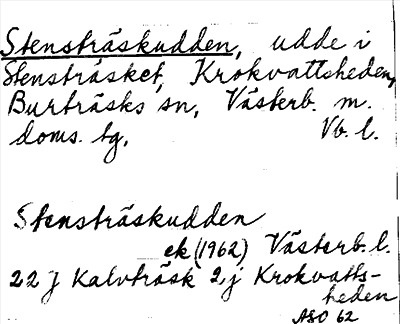 Stensträskudden, udde i
Stensträsket, Krokvattsheden,
Burträsks sn, Västerb. m.
doms. tg, Vb. l.
Stensträskudden
ek (1962) Västerb. l.
22 J Kalvträsk 2 j Krokvatts-
heden
ASO 62